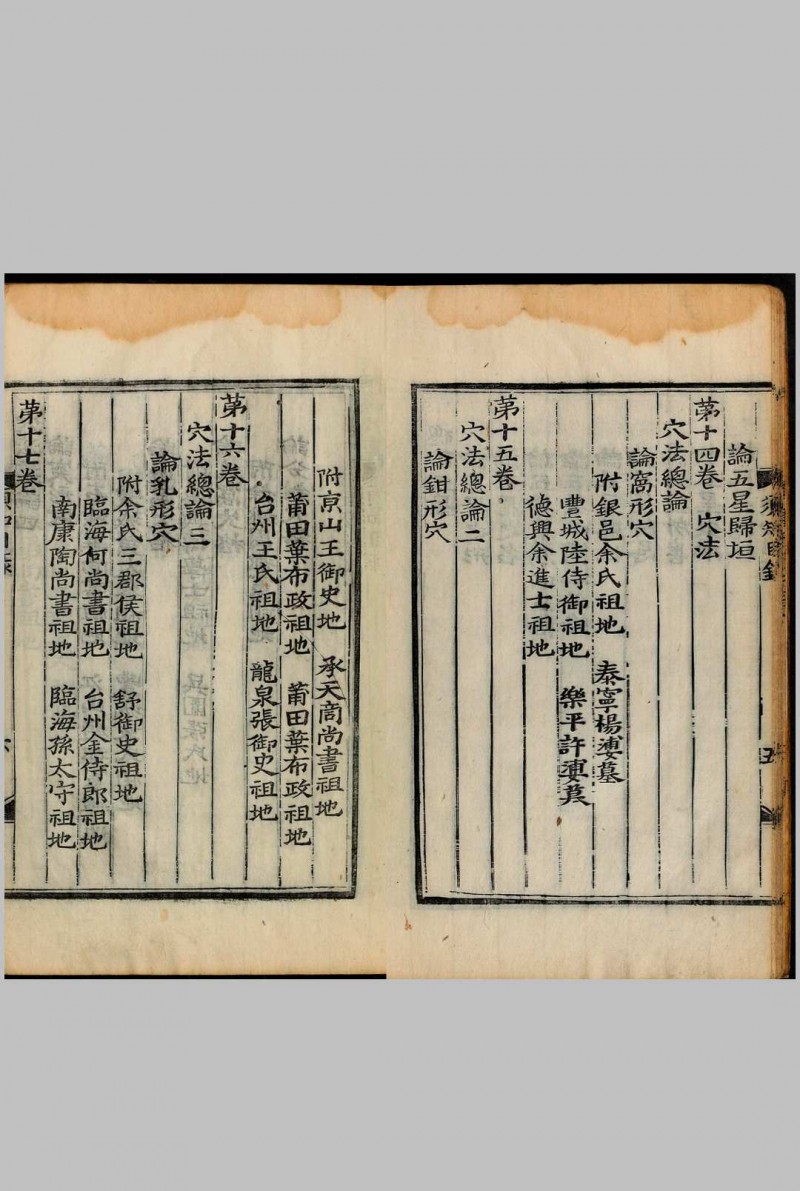 論五星歸垣
第十四卷 穴法
穴法總論
論窩形穴
附銀邑余氏祖地 泰寧楊㜑墓
豐城陸侍御祖地 樂平許㜑墓
德興余進士祖地
第十五卷
穴法總論二
論鉗形穴
附京山王御史地 承天商尚書祖地
莆田葉布政祖地 莆田葉布政祖地
台州王氏祖地 龍泉張御史祖地
第十六卷
穴法總論三
論乳形穴
附余氏三郡侯祖地 舒御史祖地
臨海何尚書祖地 台州金侍郎祖地
南康陶尚書祖地 臨海孫太守祖地
第十七卷
須知目錄
五